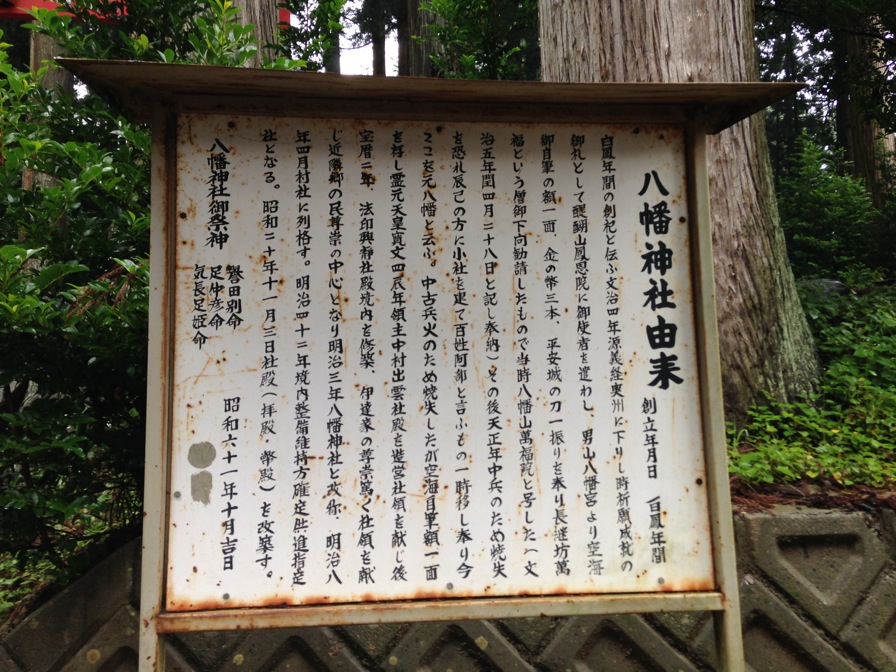 八幡神社由来　創立年月日　白鳳年間
白鳳年間の創祀と伝ふ文治四年源義経奥州に下りし時祈願成就の
御礼として醍醐山鳳恩院に御使者を遣わし、男山八幡宮より空海
御自筆の額一面、金の幣三本、平安城の刀一振りを奉り長継坊萬
福という僧御下向勧請したもので当時八幡山萬福院と号した(文
治五年閏四月二十八日と記し奉納)その後天正年中兵のため焼失
を恐れ辰己の方に小社を建て百姓阿部と言ふもの一時移し奉り今
ここを元八幡と云ふ。中古兵火のため焼失したが空海自筆額一面
を存し霊元天皇寛文四辰年領主中村出雲社殿を造営社領を献じ後
宝暦二年、法印興静社殿境内を修築、伊達家の尊崇篤く社領を献
じ近隣郷の民尊崇の中心となり明治三年八幡神社と改称、明治八
年四月村社に列格す。明治四十二年境内整備維持方確定供進指定
社となる。昭和二十年十一月三日社殿(拝殿、幣殿)を改築す。
八幡神社御祭神
誉田別命
足仲彦命
気長足姫命
昭和六十一年十月吉日